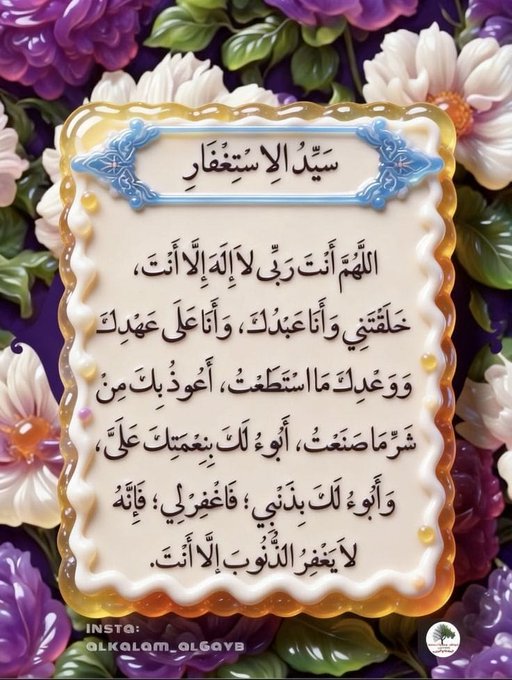 سَيِّدُ الِاسْتِغْفَارِ
اللَّهُمَّ أَنْتَ رَبِّي لاَ إِلَهَ إِلَّا أَنْتَ،
خَلَقْتَنِي وَأَنَا عَبْدُكَ، وَأَنَا عَلَى عَهْدِكَ
وَوَعْدِكَ مَا اسْتَطَعْتُ، أَعُوذُ بِكَ مِنْ
شَرِّ مَا صَنَعْتُ، أَبُوءُ لَكَ بِنِعْمَتِكَ عَلَيَّ،
وَأَبُوءُ لَكَ بِذَنْبِي؛ فَاغْفِرْ لِي؛ فَإِنَّهُ
لاَ يَغْفِرُ الذُّنُوبَ إِلَّا أَنْتَ.
INSTA:
ALKALAM_ALGAYB